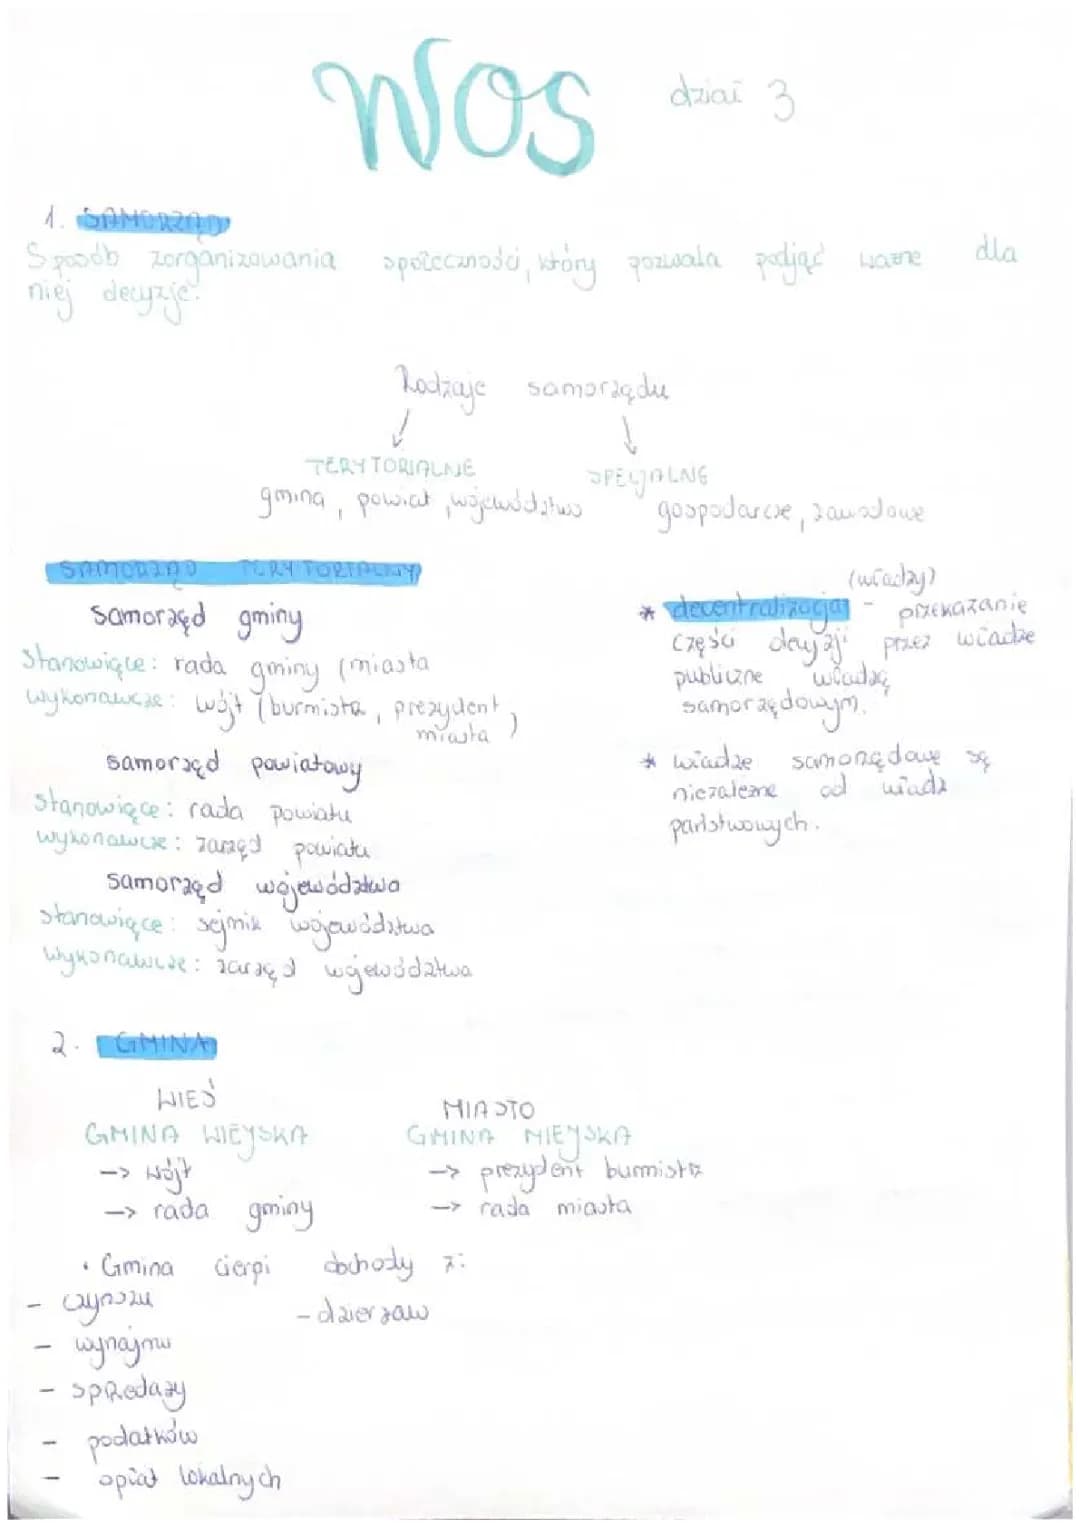 WOS dział 3
1. SAMORZĄD
Sposób zorganizowania społeczności, który pozwala podjąć ważne dla
niej decyzje.
Rodzaje samorządu
TERYTORIALNE
gmina, powiat, województwo
SPECJALNE
gospodarcze, zawodowe
SAMORZĄD TERYTORIALNY
samorząd gminy
Stanowiące: rada gminy (miasta
wykonawcze: wójt (burmistrz, prezydent
miasta)
samorząd powiatowy
stanowiące: rada powiatu
wykonawcze: zarząd powiatu
samorząd województwa
stanowiące: sejmik województwa
wykonawcze: zarząd województwa
(władzy)
* decentralizacja - przekazanie
części decyzji przez władze
publiczne władzą
samorządowym.
* władze samorządowe są
niezależne od władz
państwowych.
2. GMINA
WIEŚ
GMINA WIEJSKA
-> wójt
-> rada gminy
MIASTO
GMINA MIEJSKA
-> prezydent burmistrz
-> rada miasta
• Gmina cierpi dochody z:
- czynszu
- dzierżaw
- wynajmu
- sprzedaży
- podatków
- opłat lokalnych